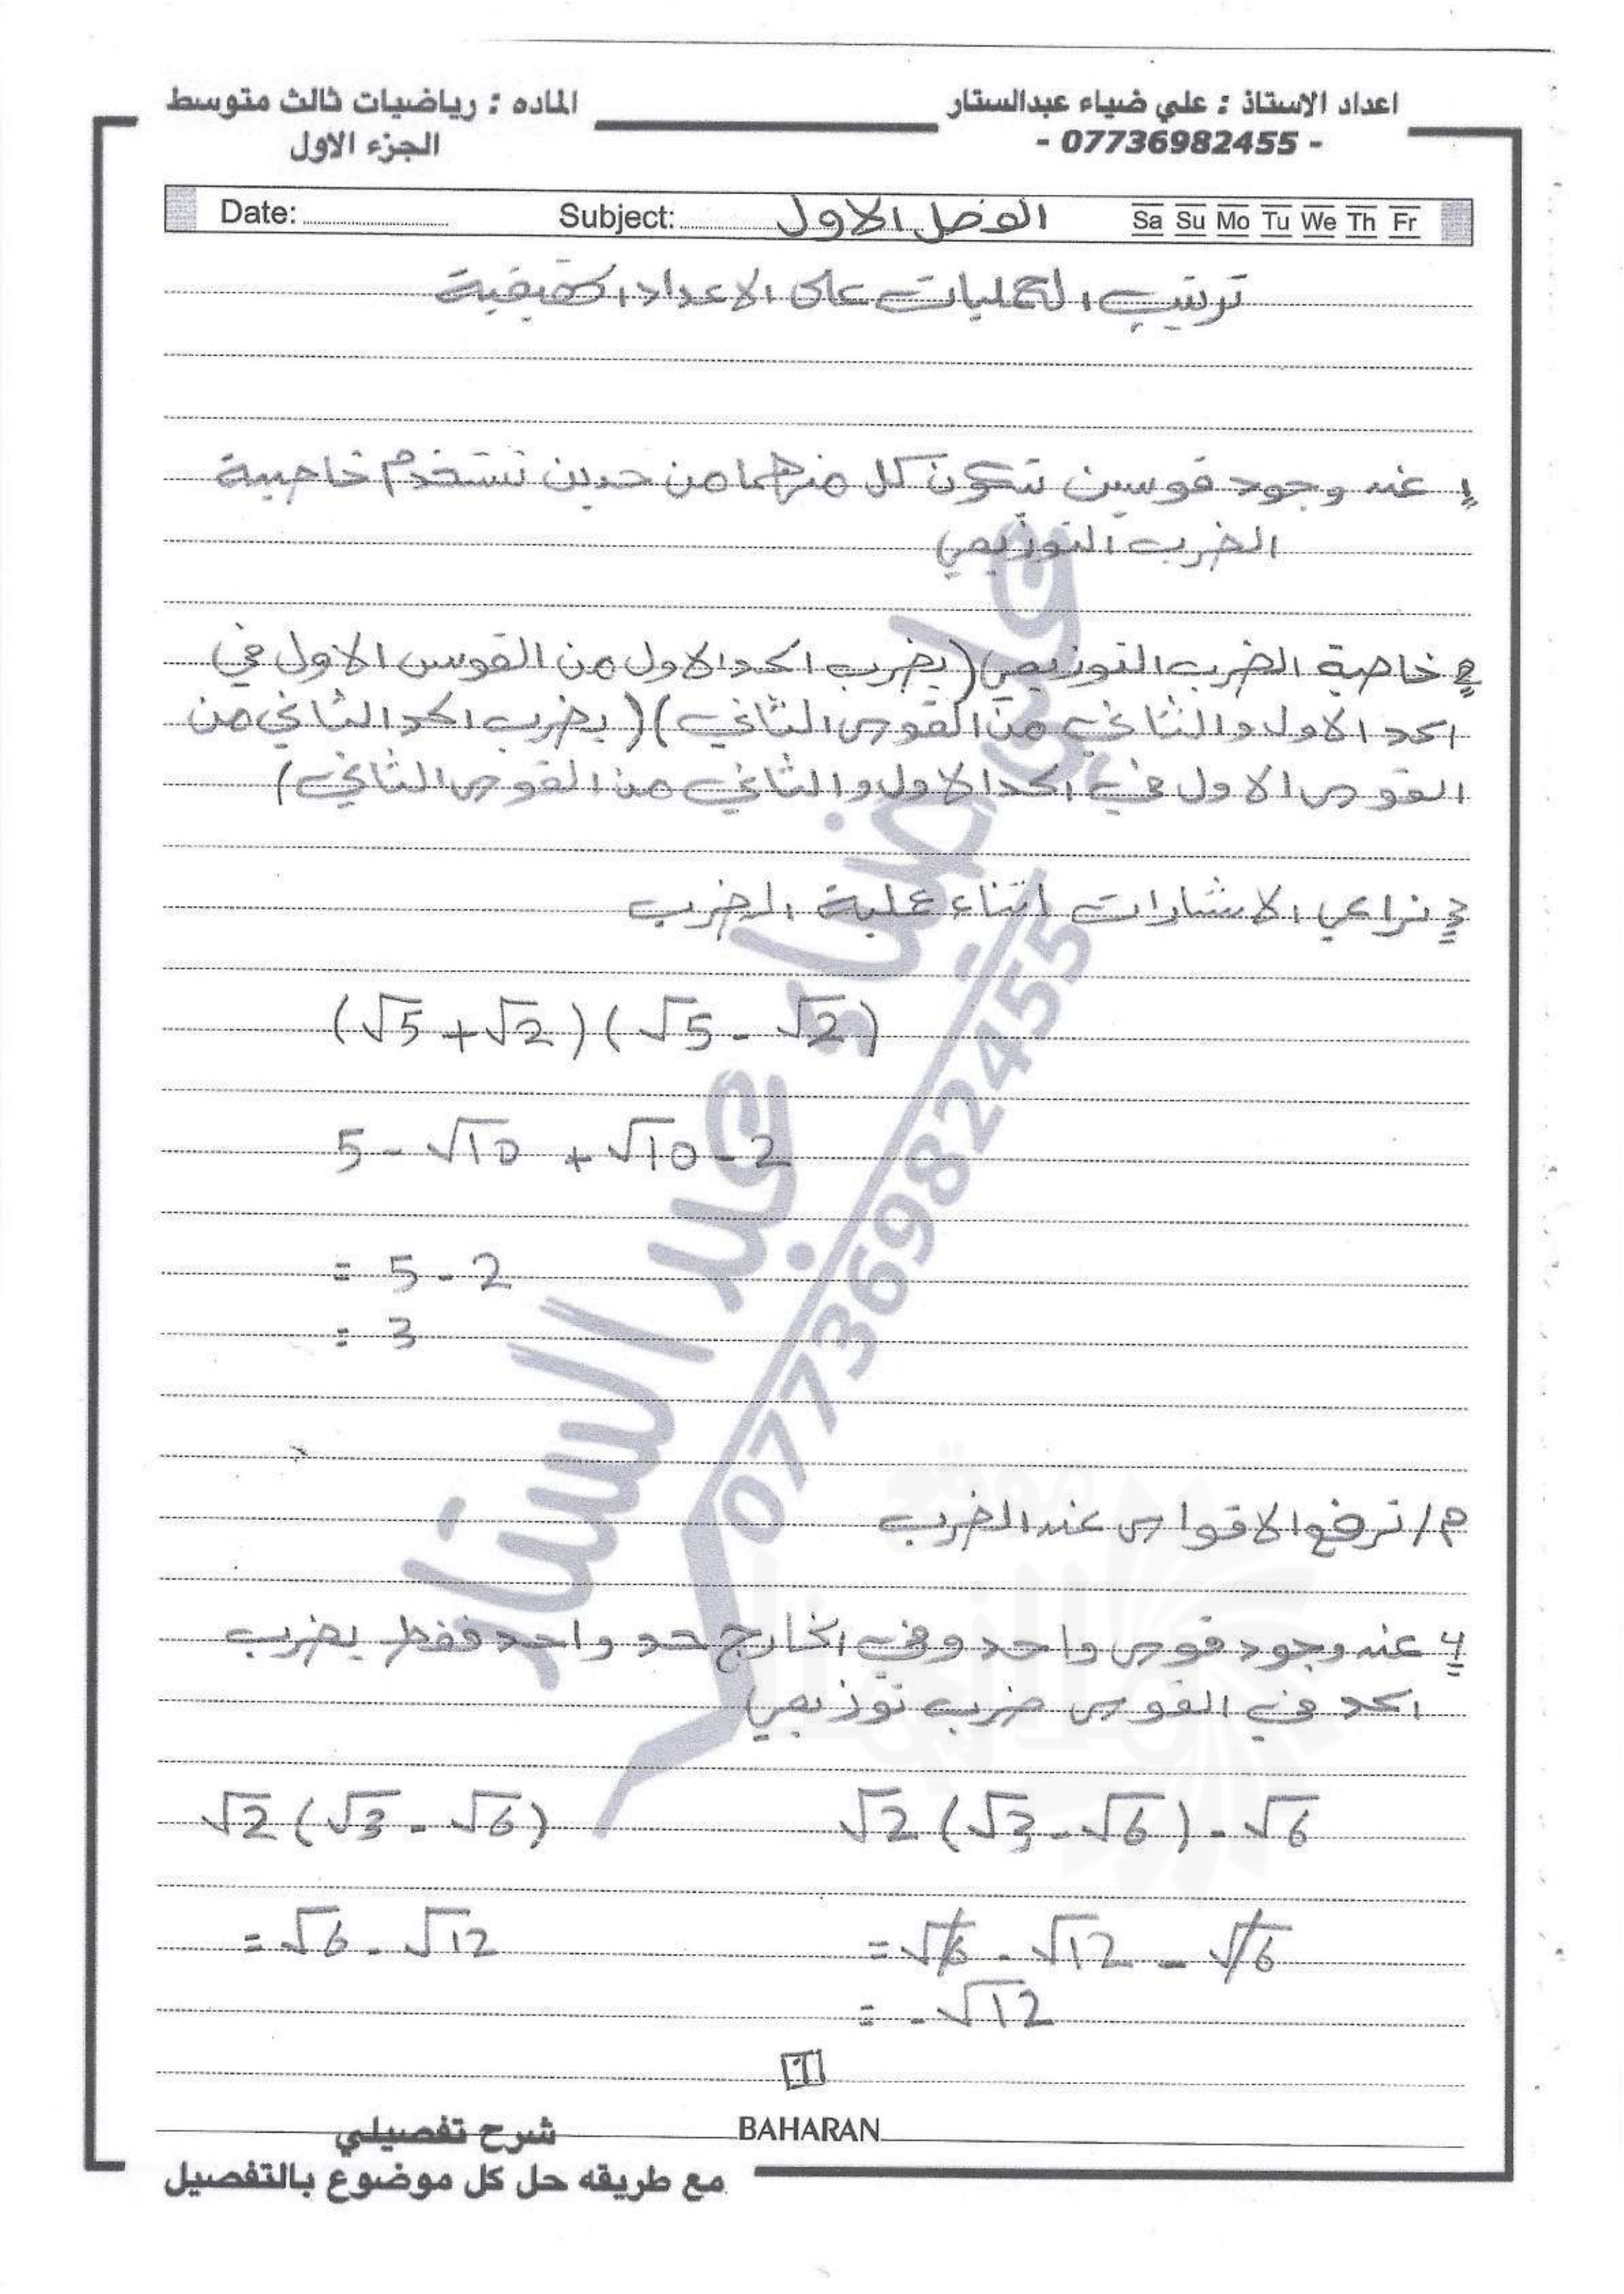 اعداد الاستاذ : علي ضياء عبدالستار
- 07736982455 -
الماده : رياضيات ثالث متوسط
الجزء الاول
Date: Subject: الفصل الاول Sa Su Mo Tu We Th Fr
ترتيب العمليات على الاعداد الحقيقية
1 عند وجود قوسين تتكون كل منهما من حدين نستخدم خاصية
الضرب التوزيعي
2 خاصية الضرب التوزيعي (يضرب الحد الاول من القوس الاول في
الحد الاول والثاني من القوس الثاني) (يضرب الحد الثاني من
القوس الاول في الحد الاول والثاني من القوس الثاني)
3 نراعي الاشارات اثناء علية الضرب
(√5 + √2) (√5 - √2)
5 - √10 + √10 - 2
= 5 - 2
= 3
م/ ترفع الاقواس عند الضرب
4 عند وجود قوس واحد وفي الخارج حد واحد فقط يضرب
الحد في القوس ضرب توزيعي
√2 (√3 - √6) - √6
= √6 - √12 - √6
= - √12
√2 (√3 - √6)
= √6 - √12
1
BAHARAN
شرح تفصيلي
مع طريقه حل كل موضوع بالتفصيل
علي ضياء عبد الستار
07736982455